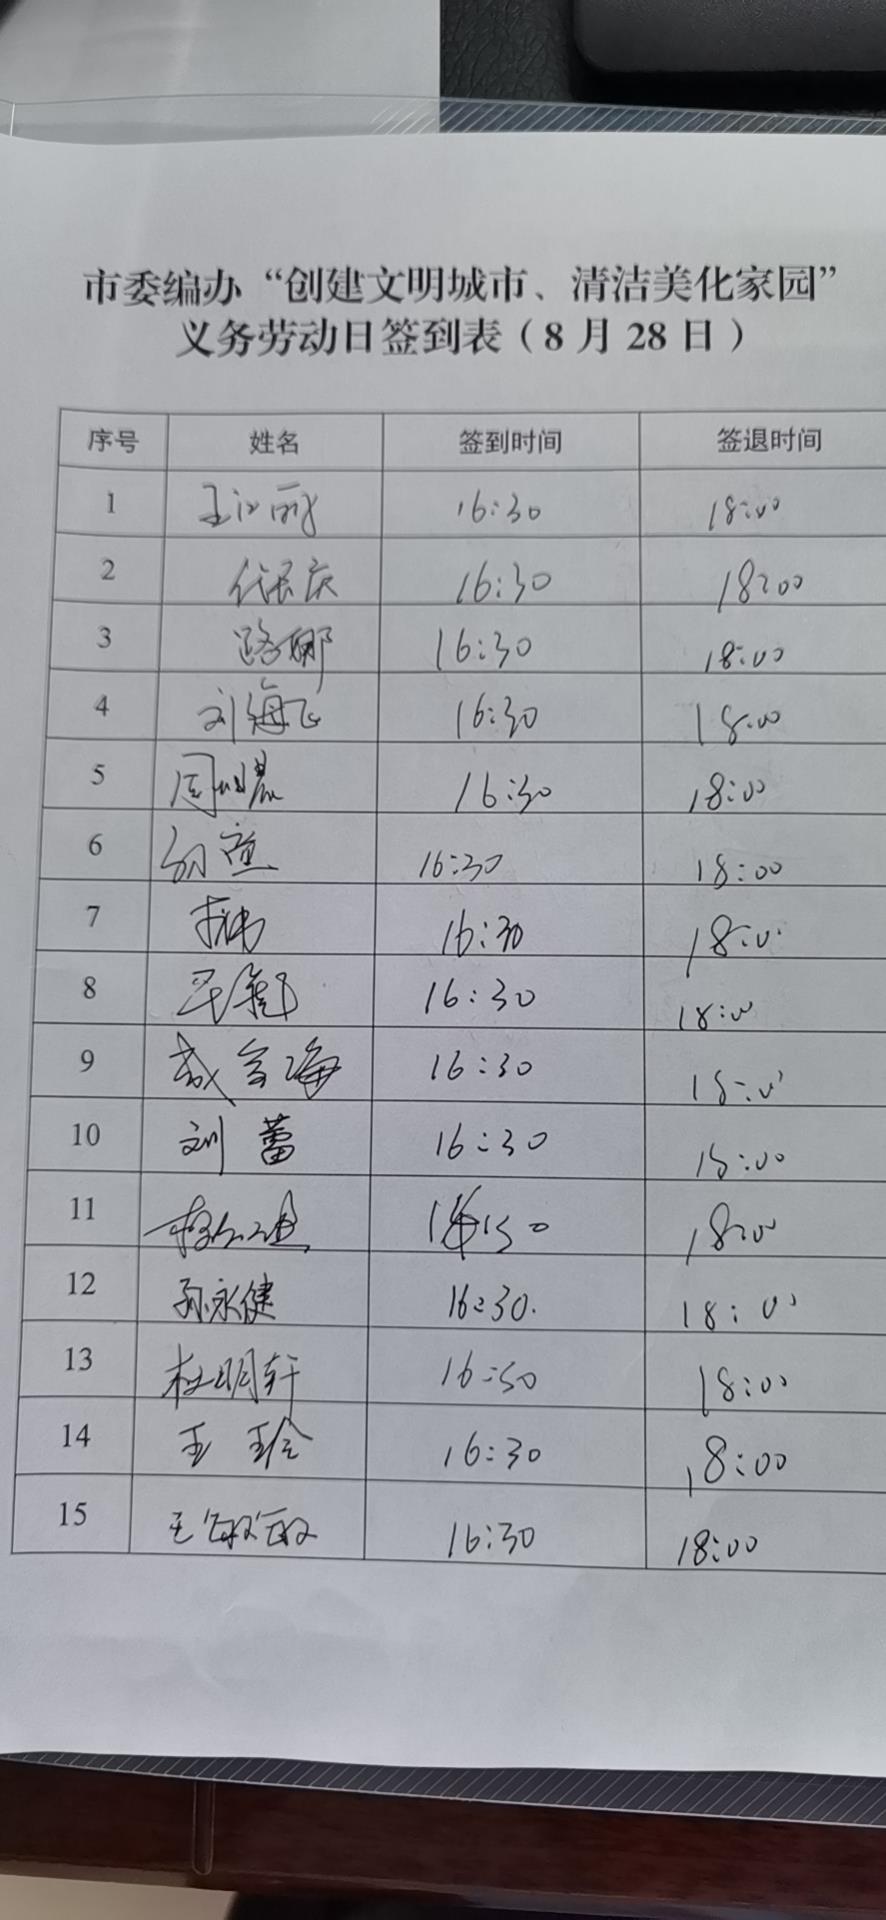 市委编办“创建文明城市、清洁美化家园”
义务劳动日签到表（8月28日）
序号 姓名 签到时间 签退时间
1 16:30 18:00
2 代长庆 16:30 18:00
3 路娜 16:30 18:00
4 刘海飞 16:30 18:00
5 16:30 18:00
6 16:30 18:00
7 16:30 18:00
8 16:30 18:00
9 16:30 18:00
10 刘蕾 16:30 18:00
11 18:00
12 孙永健 16:30 18:00
13 杜明轩 16:30 18:00
14 王玲 16:30 18:00
15 王敏敏 16:30 18:00